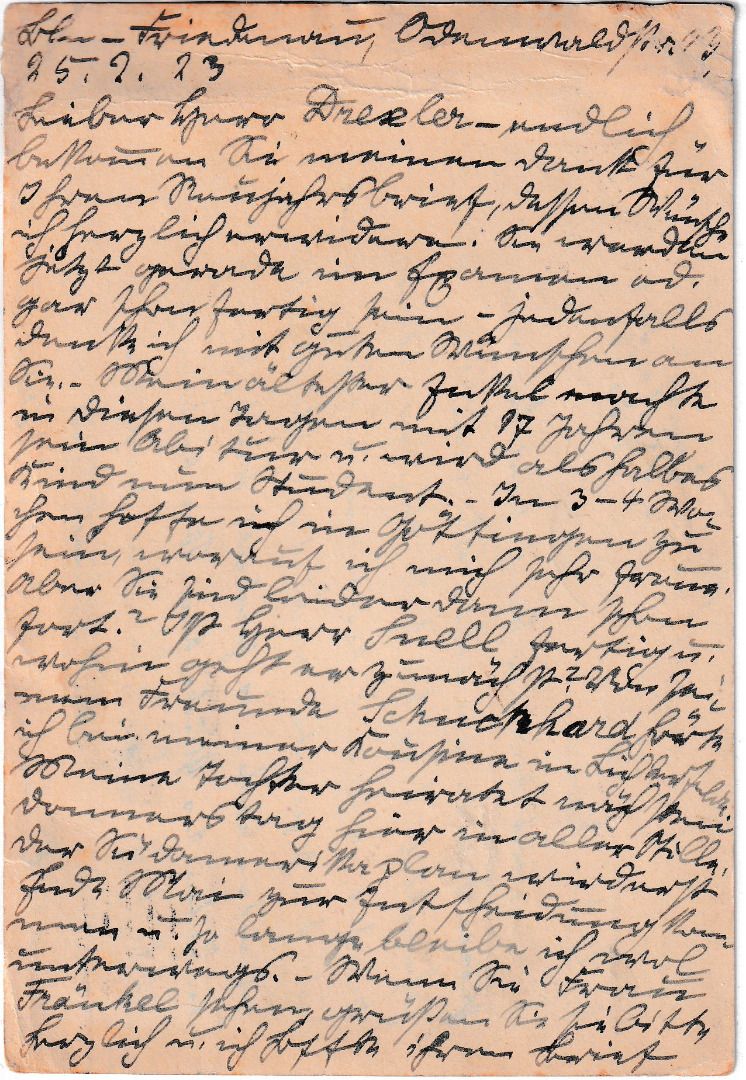 Bln – Friedenau, Odenwaldstr. 19.
25. 2. 23
Lieber Herr Drexler – endlich
bekommen Sie meinen Dank für
Ihren Neujahrsbrief, dessen Wünsche
ich herzlich erwidere. Sie werden
jetzt gerade im Examen od.
gar schon fertig sein – jedenfalls
denke ich mit guten Wünschen an
Sie. – Mein ältester Enkel machte
in diesen Tagen mit 17 Jahren
sein Abitur u. wird als halbes
Kind nun Student. – In 3–4 Wo-
chen hoffe ich in Göttingen zu
sein, worauf ich mich sehr freue.
Aber Sie sind leider dann schon
fort.? Ist Herr Snell fertig u.
wohin geht er zunächst? Von
nem Freunde Schuckhard hörte
ich bei meiner Kousine in Lichterfelde.
Meine Tochter heiratet nächsten
Donnerstag hier in aller Stille.
Der Südamerikaplan wird erst
Ende Mai zur Entscheidung kom-
men u. so lange bleibe ich wol
unterwegs. – Wenn Sie Frau
Fränkel sehen, grüßen Sie sie bitte
herzlich u. ich hoffte ihren Brief